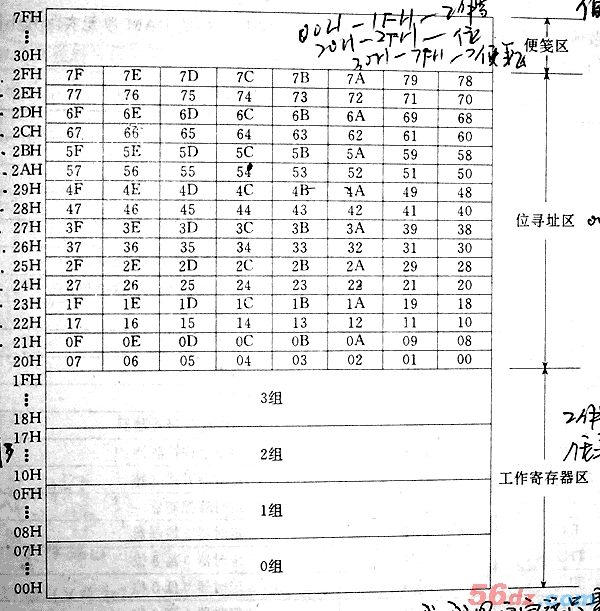 7FH
⋮
30H
便笺区
00H—1FH—工作
20H—2FH—位
30H—7FH—便笺区
2FH 7F 7E 7D 7C 7B 7A 79 78
2EH 77 76 75 74 73 72 71 70
2DH 6F 6E 6D 6C 6B 6A 69 68
2CH 67 66 65 64 63 62 61 60
2BH 5F 5E 5D 5C 5B 5A 59 58
2AH 57 56 55 54 53 52 51 50
29H 4F 4E 4D 4C 4B 4A 49 48
28H 47 46 45 44 43 42 41 40
位寻址区
27H 3F 3E 3D 3C 3B 3A 39 38
26H 37 36 35 34 33 32 31 30
25H 2F 2E 2D 2C 2B 2A 29 28
24H 27 26 25 24 23 22 21 20
23H 1F 1E 1D 1C 1B 1A 19 18
22H 17 16 15 14 13 12 11 10
21H 0F 0E 0D 0C 0B 0A 09 08
20H 07 06 05 04 03 02 01 00
1FH
⋮ 3组
18H
17H
⋮ 2组
10H
工作寄存器区
0FH
⋮ 1组
08H
07H
⋮ 0组
00H
56dz.com